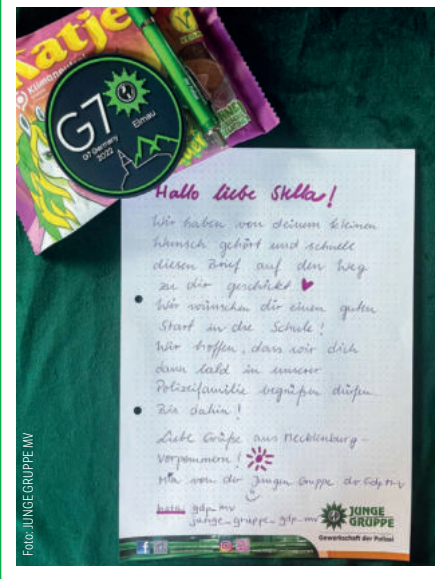 Katje
Klimaneutral
VEGGIE
JUNGE
GRUPPE
G7
Elmau
G7 Germany
2022
Hallo liebe Stella!
Wir haben von deinem kleinen
Wunsch gehört und schnell
diesen Brief auf den Weg
zu dir geschickt ♥
Wir wünschen dir einen guten
Start in die Schule!
Wir hoffen, dass wir dich
dann bald in unserer
Polizeifamilie begrüßen dürfen
Bis dahin!
Liebe Grüße aus Mecklenburg-
Vorpommern!
Mia von der Jungen Gruppe der GdP MV
Insta: gdp_mv
junge_gruppe_gdp_mv
GdP JUNGE
GRUPPE
Gewerkschaft der Polizei
Foto: JUNGE GRUPPE MV